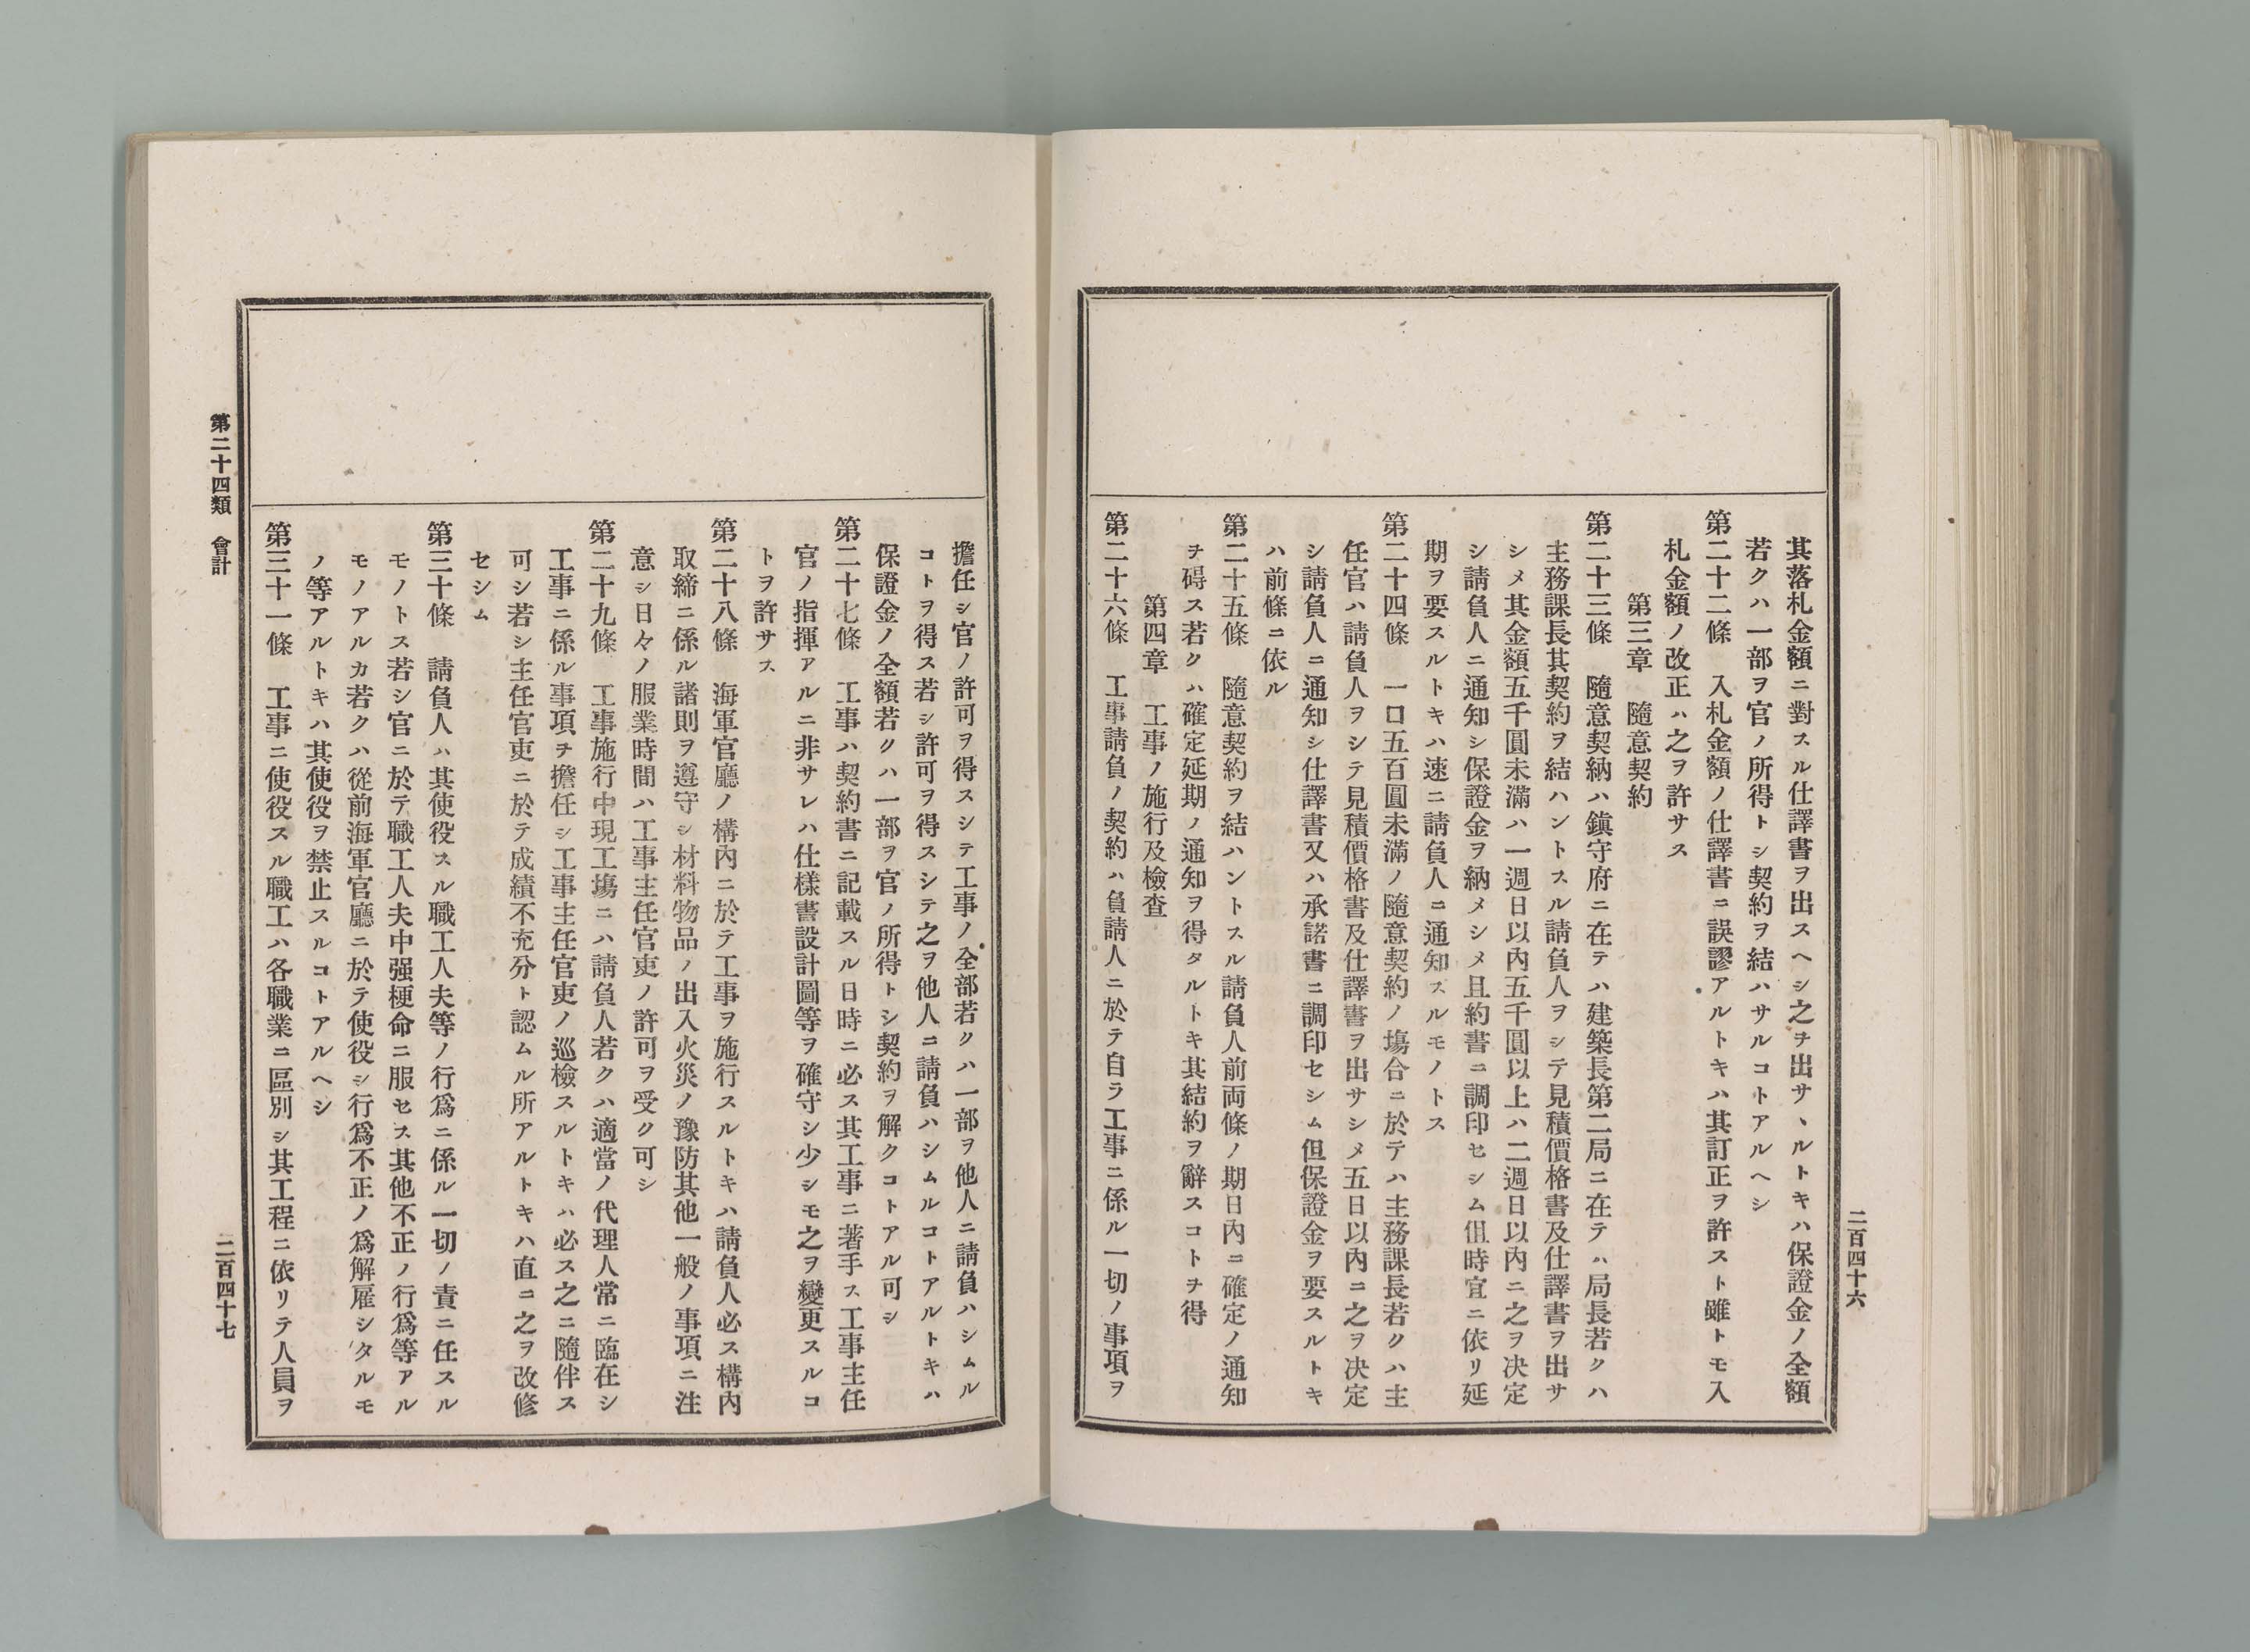 其落札金額ニ對スル仕譯書ヲ出スヘシ之ヲ出サヽルトキハ保證金ノ全額
若クハ一部ヲ官ノ所得トシ契約ヲ結ハサルコトアルヘシ
第二十二條　入札金額ノ仕譯書ニ誤謬アルトキハ其訂正ヲ許スト雖トモ入
札金額ノ改正ハ之ヲ許サス
第三章　隨意契約
第二十三條　隨意契納ハ鎭守府ニ在テハ建築長第二局ニ在テハ局長若クハ
主務課長其契約ヲ結ハントスル請負人ヲシテ見積價格書及仕譯書ヲ出サ
シメ其金額五千圓未滿ハ一週日以內五千圓以上ハ二週日以內ニ之ヲ決定
シ請負人ニ通知シ保證金ヲ納メシメ且約書ニ調印セシム伹時宜ニ依リ延
期ヲ要スルトキハ速ニ請負人ニ通知スルモノトス
第二十四條　一口五百圓未滿ノ隨意契約ノ塲合ニ於テハ主務課長若クハ主
任官ハ請負人ヲシテ見積價格書及仕譯書ヲ出サシメ五日以內ニ之ヲ決定
シ請負人ニ通知シ仕譯書又ハ承諾書ニ調印セシム但保證金ヲ要スルトキ
ハ前條ニ依ル
第二十五條　隨意契約ヲ結ハントスル請負人前両條ノ期日內ニ確定ノ通知
ヲ得ス若クハ確定延期ノ通知ヲ得タルトキ其結約ヲ辭スコトヲ得
第四章　工事ノ施行及檢查
第二十六條　工事請負ノ契約ハ負請人ニ於テ自ラ工事ニ係ル一切ノ事項ヲ
二百四十六
擔任シ官ノ許可ヲ得スシテ工事ノ全部若クハ一部ヲ他人ニ請負ハシムル
コトヲ得ス若シ許可ヲ得スシテ之ヲ他人ニ請負ハシムルコトアルトキハ
保證金ノ全額若クハ一部ヲ官ノ所得トシ契約ヲ解クコトアル可シ
第二十七條　工事ハ契約書ニ記載スル日時ニ必ス其工事ニ著手ス工事主任
官ノ指揮アルニ非サレハ仕樣書設計圖等ヲ確守シ少シモ之ヲ變更スルコ
トヲ許サス
第二十八條　海軍官廳ノ構內ニ於テ工事ヲ施行スルトキハ請負人必ス構內
取締ニ係ル諸則ヲ遵守シ材料物品ノ出入火災ノ豫防其他一般ノ事項ニ注
意シ日々ノ服業時間ハ工事主任官吏ノ許可ヲ受ク可シ
第二十九條　工事施行中現工塲ニハ請負人若クハ適當ノ代理人常ニ臨在シ
工事ニ係ル事項ヲ擔任シ工事主任官吏ノ巡檢スルトキハ必ス之ニ隨伴ス
可シ若シ主任官吏ニ於テ成績不充分ト認ムル所アルトキハ直ニ之ヲ改修
セシム
第三十條　請負人ハ其使役スル職工人夫等ノ行爲ニ係ル一切ノ責ニ任スル
モノトス若シ官ニ於テ職工人夫中强梗命ニ服セス其他不正ノ行爲等アル
モノアルカ若クハ從前海軍官廳ニ於テ使役シ行爲不正ノ爲解雇シタルモ
ノ等アルトキハ其使役ヲ禁止スルコトアルヘシ
第三十一條　工事ニ使役スル職工ハ各職業ニ區別シ其工程ニ依リテ人員ヲ
第二十四類　會計
二百四十七